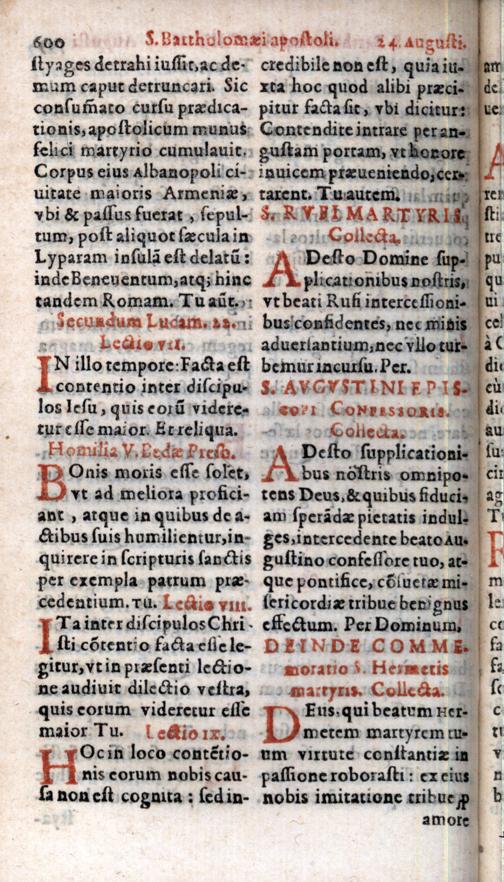 600 S. Bartholomæi apostoli. 24. Augusti.
styages detrahi iussit, ac de-
mum caput detruncari. Sic
consum̃ato cursu prædica-
tionis, apostolicum munus
felici martyrio cumulauit.
Corpus eius Albanopoli ci-
uitate maioris Armeniæ,
vbi & passus fuerat, sepul-
tum, post aliquot sæcula in
Lyparam insulã est delatũ:
inde Beneuentum, atq; hinc
tandem Romam. Tu aũt.
Secundum Lucam. 22.
Lectio vii.
IN illo tempore: Facta est
contentio inter discipu-
los Iesu, quis eorũ videre-
tur esse maior. Et reliqua.
Homilia V. Bedæ Presb.
BOnis moris esse solet,
vt ad meliora profici-
ant, atque in quibus de a-
ctibus suis humilientur, in-
quirere in scripturis sanctis
per exempla patrum præ-
cedentium. Tu. Lectio viii.
ITa inter discipulos Chri-
sti cõtentio facta esse le-
gitur, vt in præsenti lectio-
ne audiuit dilectio vestra,
quis eorum videretur esse
maior Tu. Lectio ix.
HOc in loco contẽtio-
nis eorum nobis cau-
sa non est cognita: sed in-
credibile non est, quia iu-
xta hoc quod alibi præci-
pitur facta sit, vbi dicitur:
Contendite intrare per an-
gustam portam, vt honore
inuicem præueniendo, cer-
tarent. Tu autem.
S. RVFI MARTYRIS.
Collecta.
ADesto Domine sup-
plicationibus nostris,
vt beati Rufi intercessioni-
bus confidentes, nec minis
aduersantium, nec vllo tur-
bemur incursu. Per.
S. AVGVSTINI EPIS-
COPI CONFESSORIS.
Collecta.
ADesto supplicationi-
bus nostris omnipo-
tens Deus, & quibus fiduci-
am sperãdæ pietatis indul-
ges, intercedente beato Au-
gustino confessore tuo, at-
que pontifice, cõsuetæ mi-
sericordiæ tribue benignus
effectum. Per Dominum.
DEINDE COMME-
moratio S. Hermetis
martyris. Collecta.
DEus, qui beatum Her-
metem martyrem tu-
um virtute constantiæ in
passione roborasti: ex eius
nobis imitatione tribue ꝓ
amore